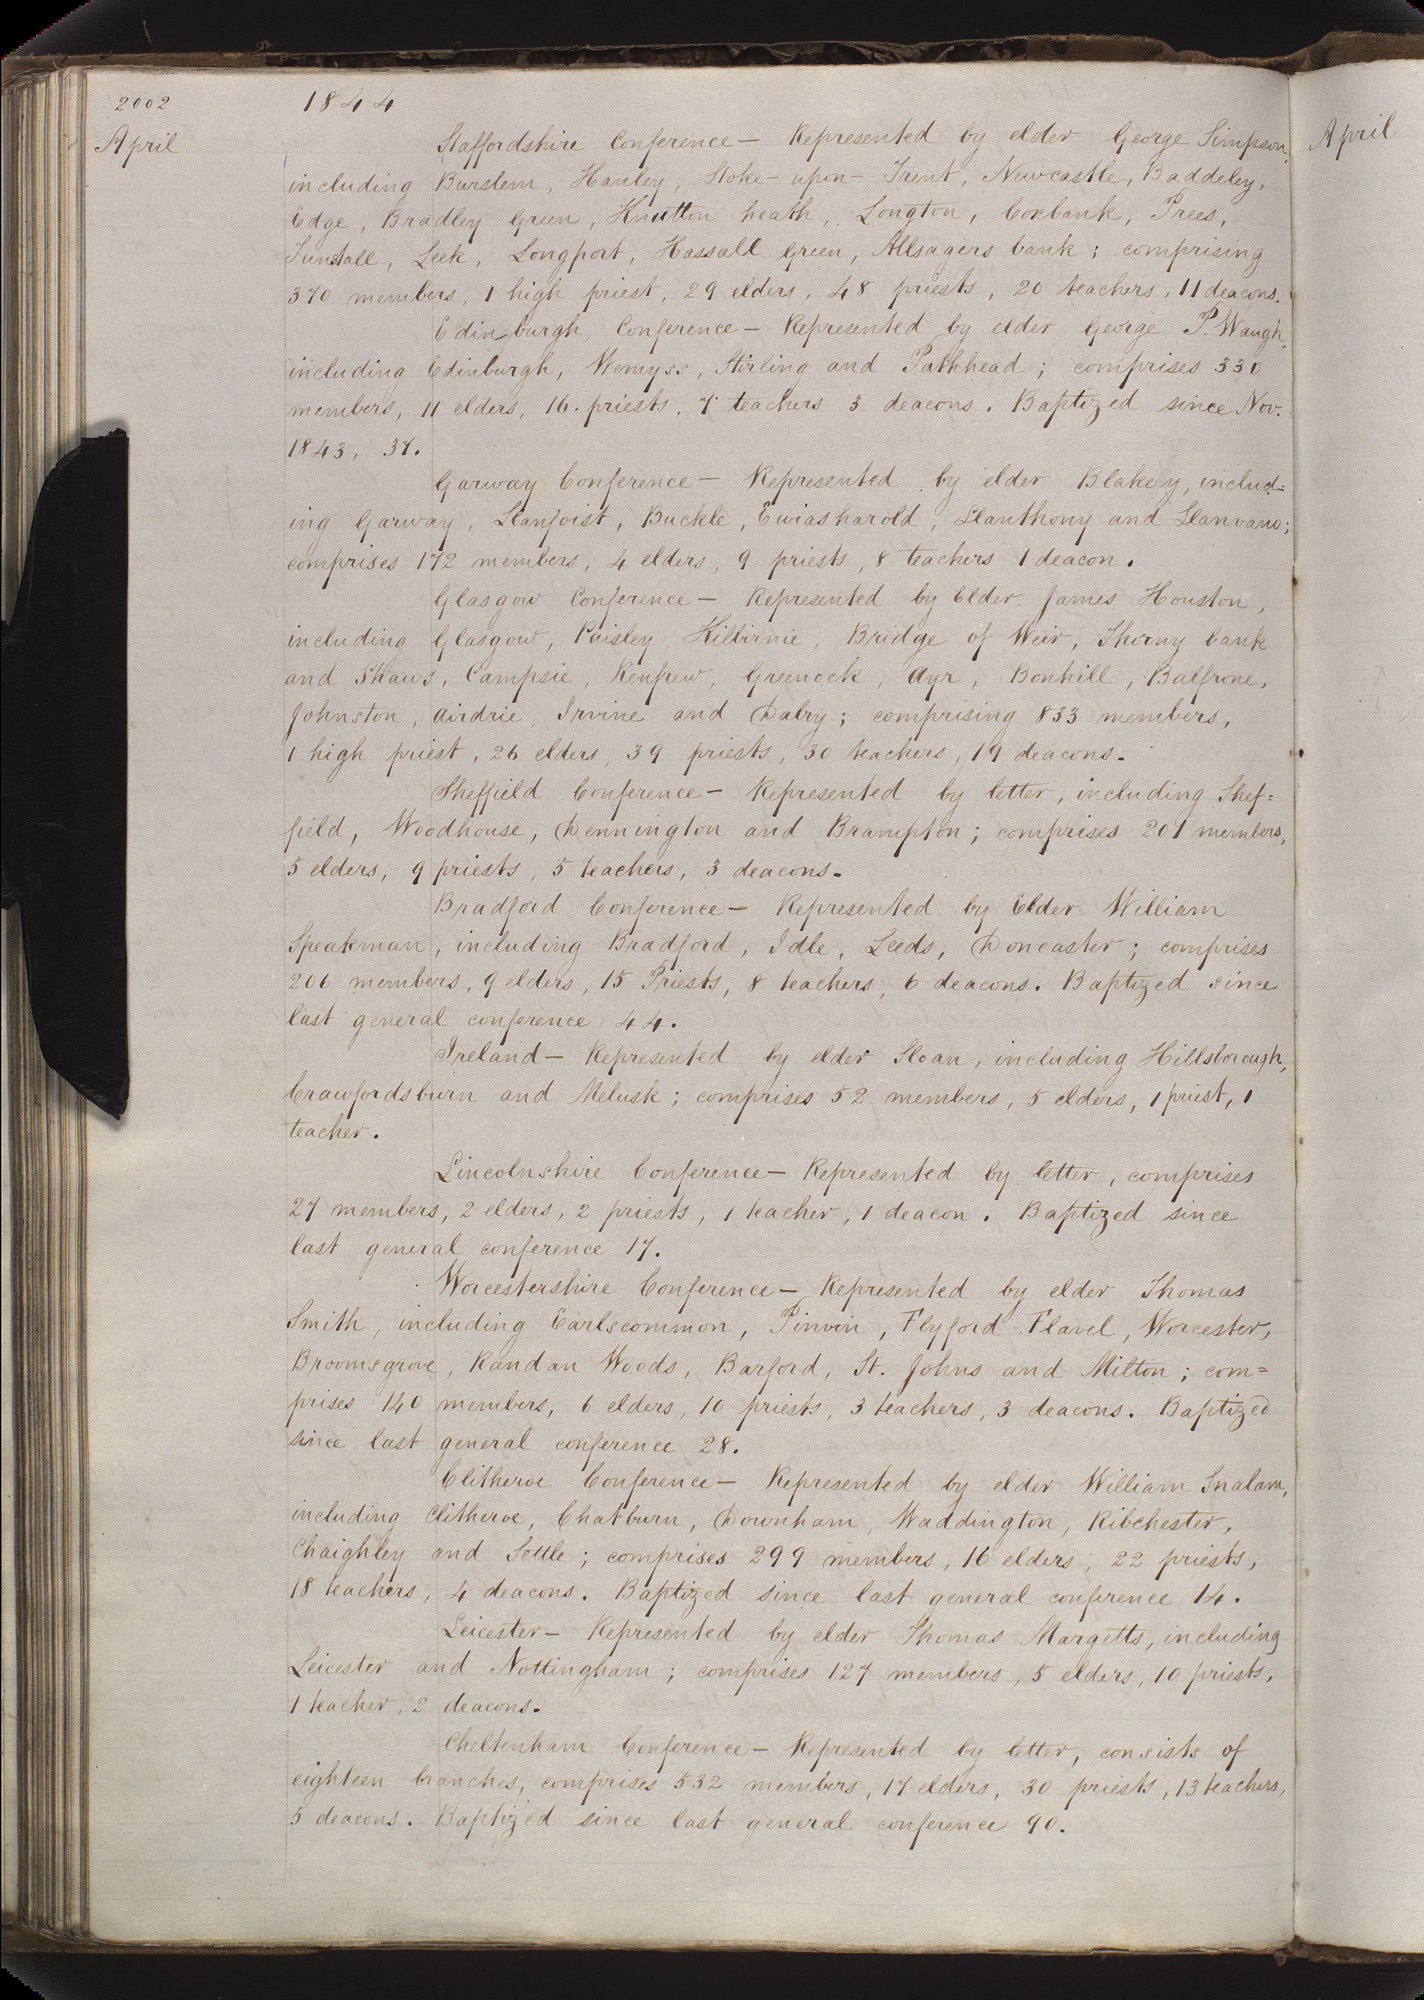 2002
1844
April
Staffordshire Conference — Represented by elder George Simpson,
including Burslem, Hanley, Stoke-upon-Trent, Newcastle, Baddeley,
Edge, Bradley Green, Knutton heath, Longton, Coxbank, Prees,
Tunstall, Leek, Longport, Hassall Green, Allsagers bank; comprising
370 members, 1 high priest, 29 elders, 48 priests, 20 teachers, 11 deacons.
Edinburgh Conference — Represented by elder George P. Waugh,
including Edinburgh, Wemyss, Stirling and Pathhead; comprises 330
members, 11 elders, 16. priests, 7 teachers 3 deacons. Baptized since Nov.
1843, 37.
Garway Conference — Represented by elder Blakey, includ=
ing Garway, Llanfoist, Buckle, Ewiasharold, Llanthony and Llanvano;
comprises 172 members, 4 elders, 9 priests, 8 teachers 1 deacon.
Glasgow Conference — Represented by Elder James Houston,
including Glasgow, Paisley, Kilbirnie, Bridge of Weir, Thorny bank
and Shaws, Campsie, Renfrew, Greenock, Ayr, Bonhill, Balfrone,
Johnston, Airdrie, Irvine and Dalry; comprising 833 members,
1 high priest, 26 elders, 39 priests, 30 teachers, 19 deacons.
Sheffield Conference — Represented by letter, including Shef=
field, Woodhouse, Dennington and Brampton; comprises 201 members,
5 elders, 9 priests, 5 teachers, 3 deacons.
Bradford Conference — Represented by Elder William
Speakman, including Bradford, Idle, Leeds, Doncaster; comprises
206 members, 9 elders, 15 Priests, 8 teachers, 6 deacons. Baptized since
last general conference 44.
Ireland — Represented by elder Sloan, including Hillsborough,
Crawfordsburn and Melusk; comprises 52 members, 5 elders, 1 priest, 1
teacher.
Lincolnshire Conference — Represented by letter, comprises
27 members, 2 elders, 2 priests, 1 teacher, 1 deacon. Baptized since
last general conference 17.
Worcestershire Conference — Represented by elder Thomas
Smith, including Earlscommon, Pinvin, Flyford Flavel, Worcester,
Broomsgrove, Randan Woods, Barford, St. Johns and Milton; com=
prises 140 members, 6 elders, 10 priests, 3 teachers, 3 deacons. Baptized
since last general conference 28.
Clitheroe Conference — Represented by elder William Snalam,
including Clitheroe, Chatburn, Downham, Waddington, Ribchester,
Chaighley and Settle; comprises 299 members, 16 elders, 22 priests,
18 teachers, 4 deacons. Baptized since last general conference 14.
Leicester — Represented by elder Thomas Margetts, including
Leicester and Nottingham; comprises 127 members, 5 elders, 10 priests,
1 teacher, 2 deacons.
Cheltenham Conference — Represented by letter, consists of
eighteen branches, comprises 532 members, 17 elders, 30 priests, 13 teachers,
5 deacons. Baptized since last general conference 90.
April